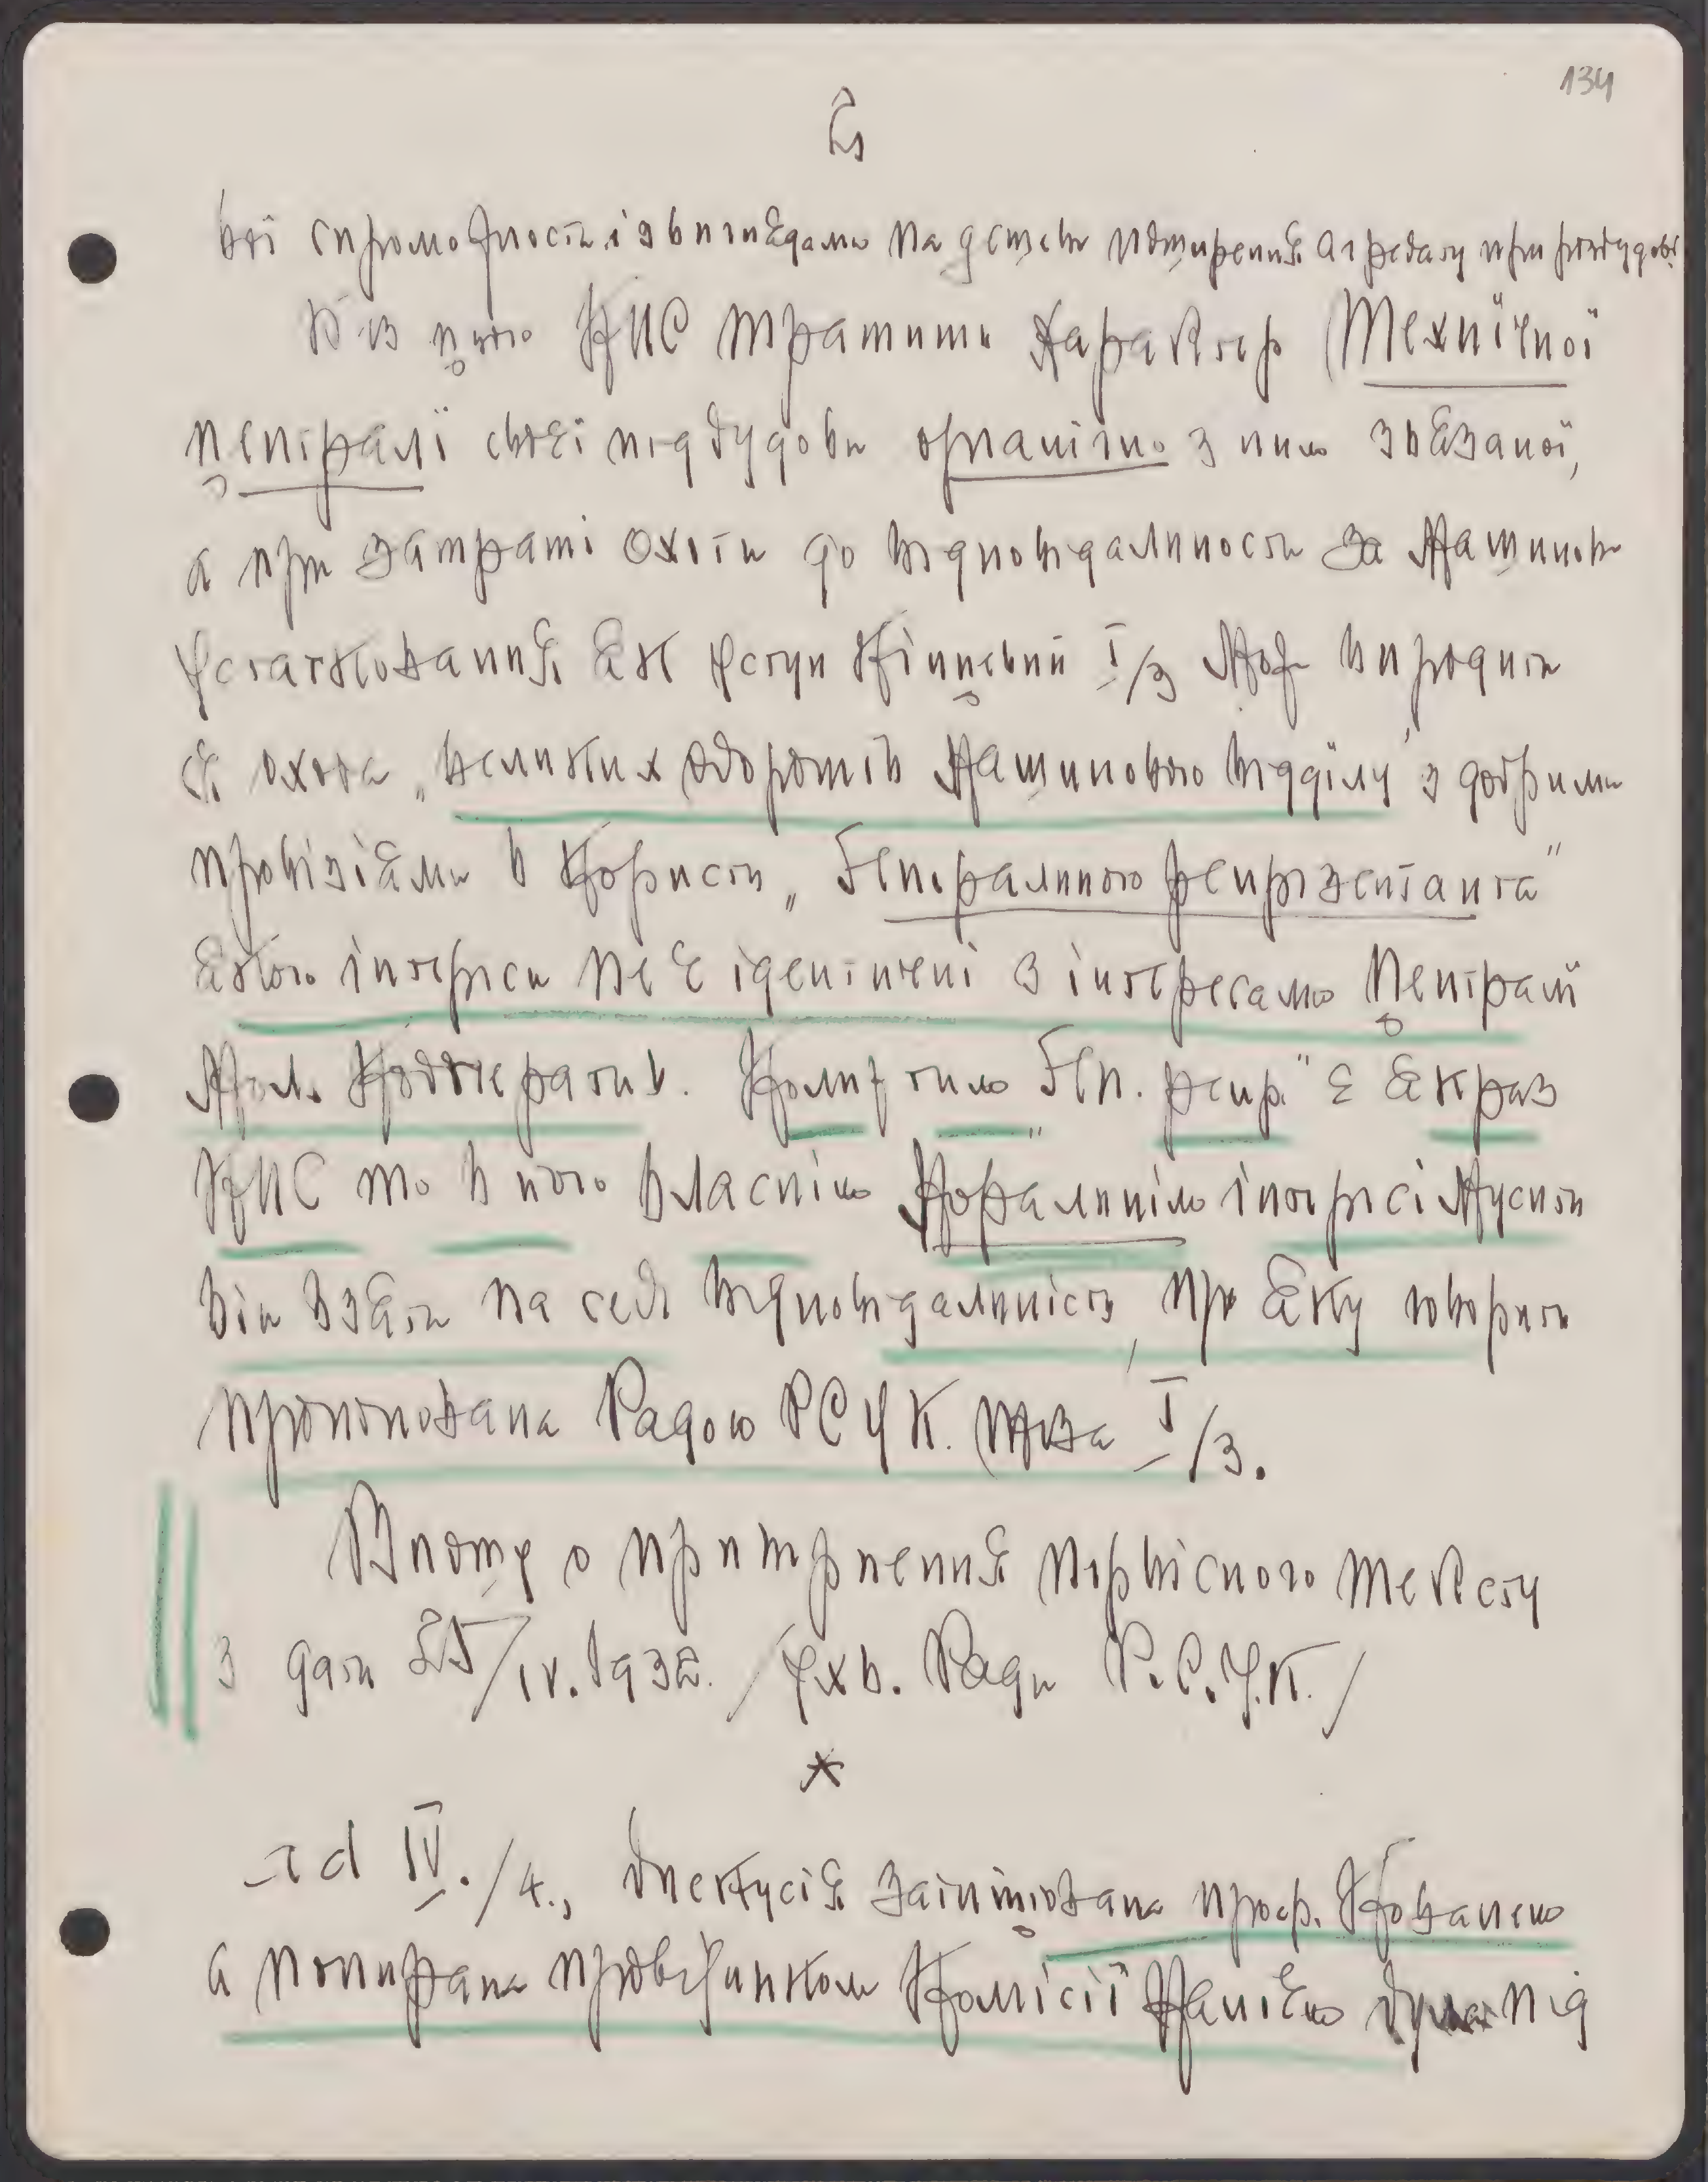 134
вої спроможности і з виглядами на дешеве поширення апарату при розбудові
Без цього КПС тратить характер Технічної
централі своєї підбудови органічно з ним звязаної,
а при затраті охоти до відповідальности за Машинове
устатковання як уступ кінцевий I/3 Може випродити
ся охота „великих оборотів Машинового відділу" з добрими
провізіями в користь „Генерального репрезентанта"
якого інтереси не є ідентичні з інтересами централі
Мол. Кооператив. Коли ж тим „Ген. репр." є якраз
КПС то в його власнім моральнім інтересі мусить
він взяти на себе відповідальність, про яку говорить
пропонована Радою РСУК. теза I/3.
Вношу о притримення первісного тексту
з дати 25/IV.1932. /Ухв. Ради Р.С.У.К./
*
ad IV./4., дискусія заініційована проф. Кованем
а попирана провідником Комісії під